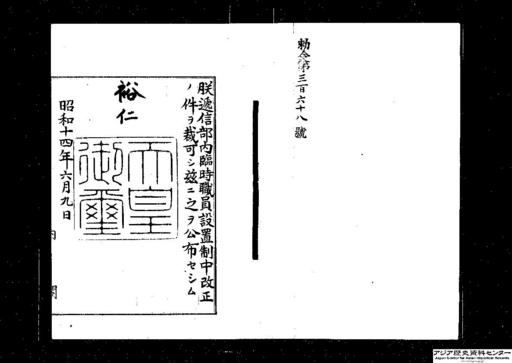 勅令第三百六十八號
朕遞信部內臨時職員設置制中改正
ノ件ヲ裁可シ茲ニ之ヲ公布セシム
裕仁
天皇御璽
昭和十四年六月九日
內閣
アジア歴史資料センター
Japan Center for Asian Historical Records